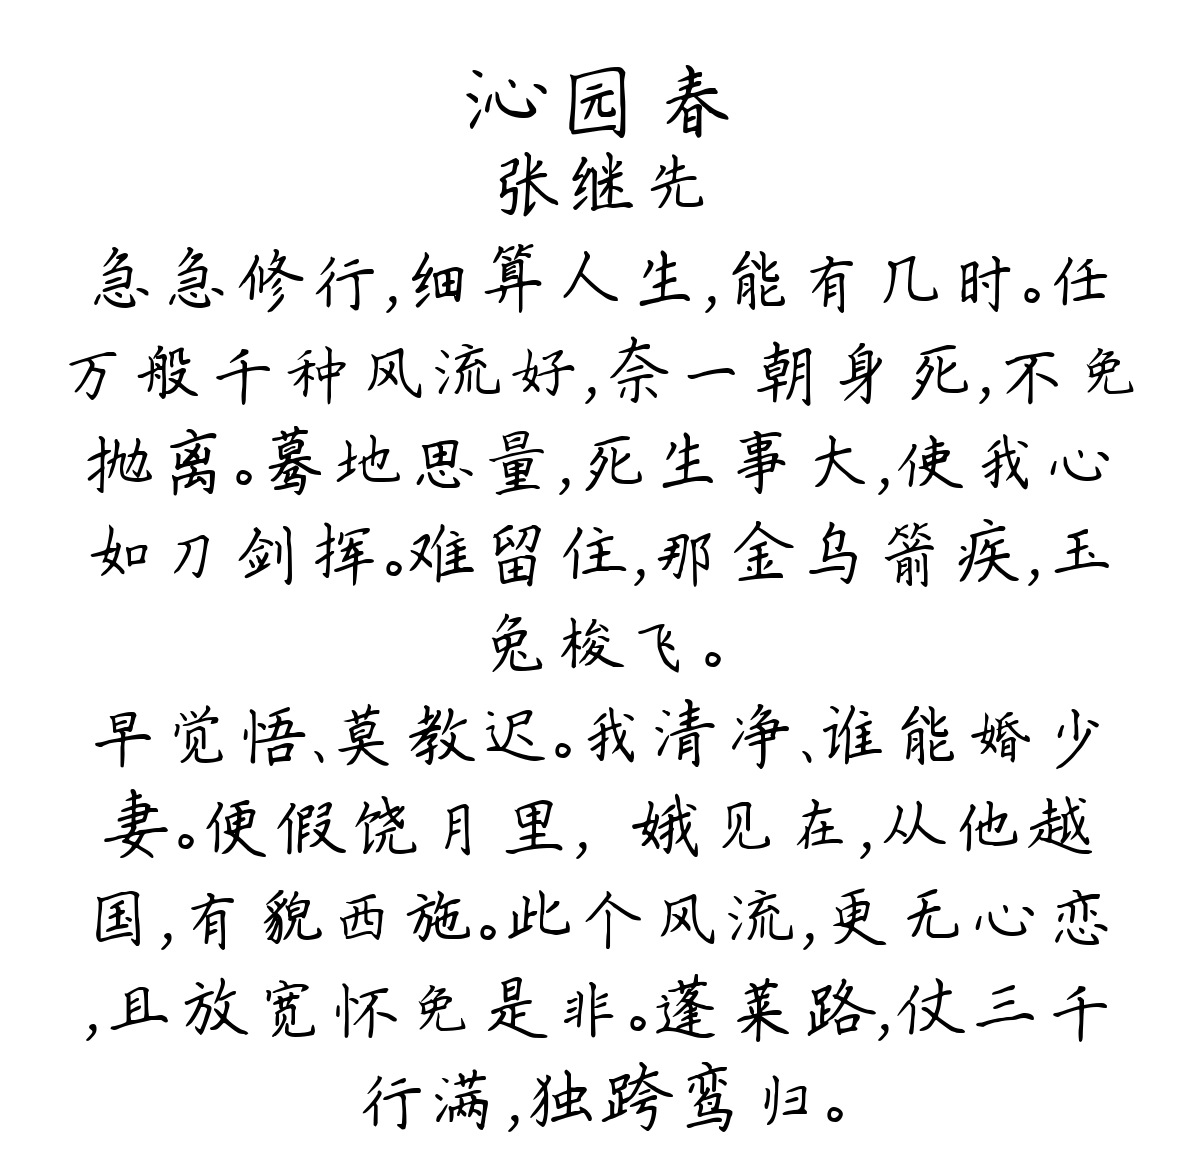 沁园春
张继先
急急修行,细算人生,能有几时。任
万般千种风流好,奈一朝身死,不免
抛离。蓦地思量,死生事大,使我心
如刀剑挥。难留住,那金乌箭疾,玉
兔梭飞。
早觉悟、莫教迟。我清净、谁能婚少
妻。便假饶月里, 娥见在,从他越
国,有貌西施。此个风流,更无心恋
,且放宽怀免是非。蓬莱路,仗三千
行满,独跨鸾归。